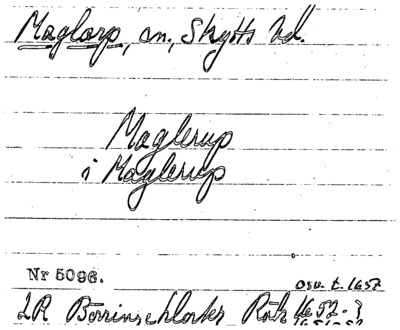 Maglarp, sn., Skytts hd.
Maglerup
i Maglerup
Nr 5096.
osv. t. 1657
LR Börringekloster Räk 1652-3